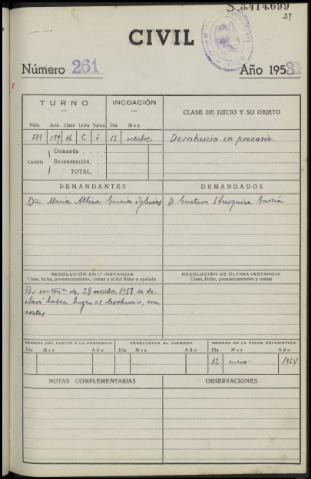 S.3414.699
27
CIVIL
Número 261 Año 1953
TURNO INCOACIÓN CLASE DE JUICIO Y SU OBJETO
Núm. Año Clase Letra Turno Día Mes
159 16 C 2 13 octubre Desahucio en precario
Cuantía Demanda
Reconvención
TOTAL
DEMANDANTES DEMANDADOS
Dña María Albina García Iglesias D. Gustavo García
RESOLUCIÓN EN 1.ª INSTANCIA RESOLUCIÓN DE ÚLTIMA INSTANCIA
Clase, fecha, pronunciamiento, costas y si fué firme o apelada. Clase, fecha, pronunciamiento y costas
Por sentª de 29 octubre 1953 se de-
claró haber lugar al desahucio, con
costas
REMESA DEL PLEITO A LA SUPERIOR DEVOLUCIÓN AL JUZGADO REMESA DE LA FICHA ESTADÍSTICA
Día Mes Año Día Mes Año Día Mes Año
12 enero 1954
NOTAS COMPLEMENTARIAS OBSERVACIONES